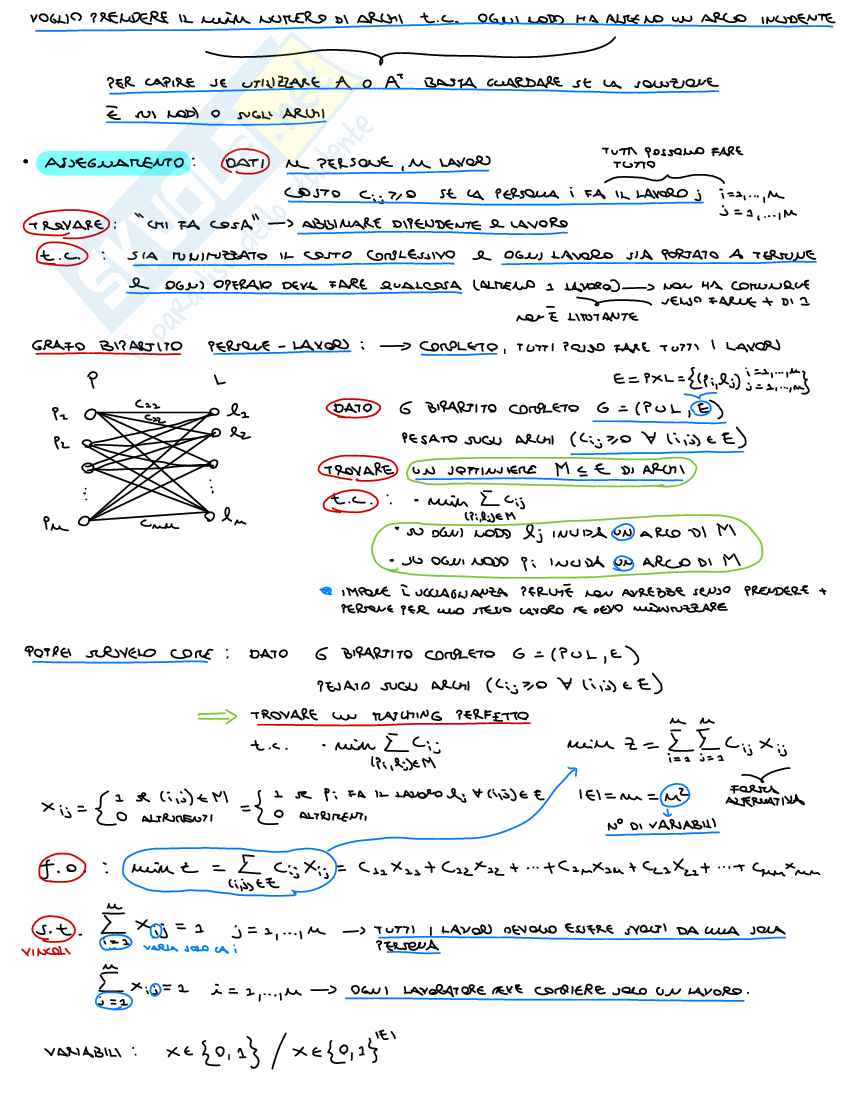 VOGLIO PRENDERE IL min NUMERO DI ARCHI t.c. OGNI NODO HA ALMENO UN ARCO INCIDENTE
PER CAPIRE SE UTILIZZARE A O Aᵀ BASTA GUARDARE SE LA SOLUZIONE
È SUI NODI O SUGLI ARCHI
• ASSEGNAMENTO : DATI n PERSONE, n LAVORI
TUTTI POSSONO FARE TUTTO
COSTO Cij ≥ 0 SE LA PERSONA i FA IL LAVORO j i=1,...,n
j=1,...,n
TROVARE : "CHI FA COSA" → ABBINARE DIPENDENTE e LAVORO
t.c. : SIA MINIMIZZATO IL COSTO COMPLESSIVO e OGNI LAVORO SIA PORTATO A TERMINE
e OGNI OPERAIO DEVE FARE QUALCOSA (ALMENO 1 LAVORO) → NON HA COMUNQUE
SENSO FARNE + DI 1
NON È LIMITANTE
GRAFO BIPARTITO PERSONE - LAVORI : → COMPLETO, TUTTI POSSO FARE TUTTI I LAVORI
P L
E = P×L = {(pi, lj) i=1,...,n j=1,...,n}
p1 C11 l1
C12
p2 l2
pn Cnn ln
DATO G BIPARTITO COMPLETO G = (P∪L, E)
PESATO SUGLI ARCHI (Cij ≥ 0 ∀ (i,j) ∈ E)
TROVARE UN SOTTINSIEME M ⊆ E DI ARCHI
t.c. : • min ∑ Cij
(pi,lj)∈M
• SU OGNI NODO lj INCIDA UN ARCO DI M
• SU OGNI NODO pi INCIDA UN ARCO DI M
IMPONE L'UGUAGLIANZA PERCHÈ NON AVREBBE SENSO PRENDERE +
PERSONE PER UNO STESSO LAVORO SE DEVO MINIMIZZARE
POTREI SCRIVELO COME : DATO G BIPARTITO COMPLETO G = (P∪L, E)
PESATO SUGLI ARCHI (Cij ≥ 0 ∀ (i,j) ∈ E)
⟹ TROVARE UN MATCHING PERFETTO
t.c. • min ∑ Cij
(pi,lj)∈M
min Z = ∑ i=1 n ∑ j=1 n Cij Xij
FORMA ALTERNATIVA
Xij = {1 se (i,j) ∈ M = {1 se pi FA IL LAVORO lj ∀ (i,j) ∈ E |E| = m = n²
0 ALTRIMENTI 0 ALTRIMENTI
N° DI VARIABILI
f.o : min z = ∑ (i,j)∈E Cij Xij = C11X11 + C12X12 + ... + C1nX1n + C21X21 + ... + CnnXnn
s.t. ∑ i=1 n Xij = 1 j = 1,...,n → TUTTI I LAVORI DEVONO ESSERE SVOLTI DA UNA SOLA
VINCOLI VARIA SOLO LA i PERSONA
∑ j=1 n Xij = 1 i = 1,...,n → OGNI LAVORATORE DEVE COMPIERE SOLO UN LAVORO.
VARIABILI : x ∈ {0,1} / x ∈ {0,1}^|E|